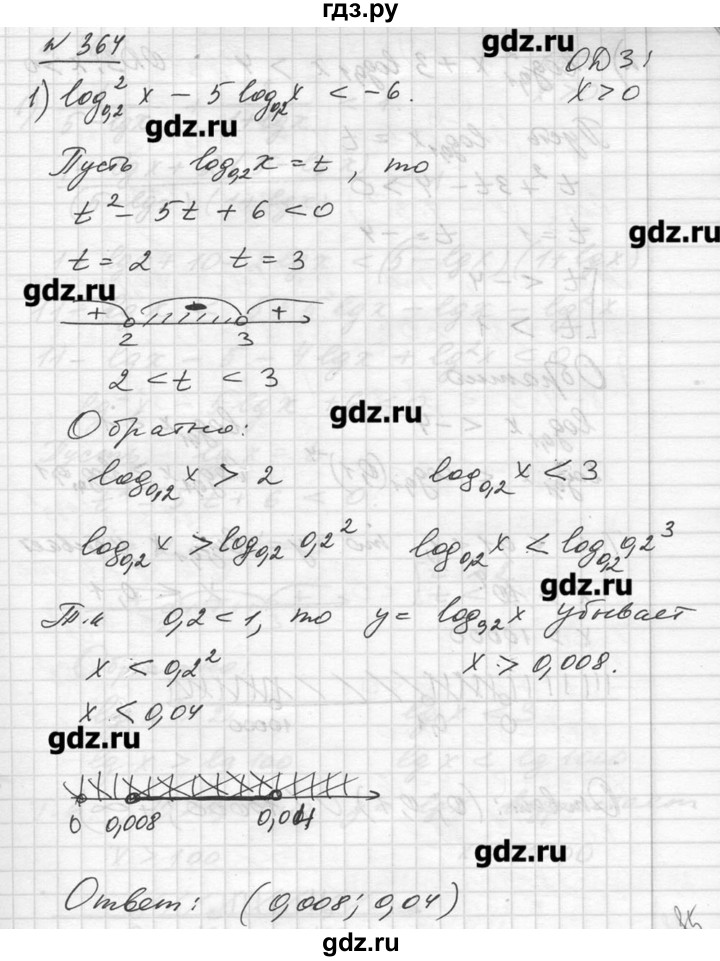 гдз.ру
№ 364
ОДЗ:
1) log²₀,₂ x − 5 log₀,₂ x < −6.
x > 0
gdz.ru
Пусть log₀,₂ x = t, то
t² − 5t + 6 < 0
gdz.ru
t = 2 t = 3
gdz.ru
+ − +
2 3
2 < t < 3
gdz.ru
Обратно:
log₀,₂ x > 2 log₀,₂ x < 3
log₀,₂ x > log₀,₂ 0,2² log₀,₂ x < log₀,₂ 0,2³
gdz.ru
Т.к 0,2 < 1, то y = log₀,₂ x убывает
x < 0,2² x > 0,008.
x < 0,04
gdz.ru
0 0,008 0,04
gdz.ru
Ответ: (0,008; 0,04)
gdz.ru